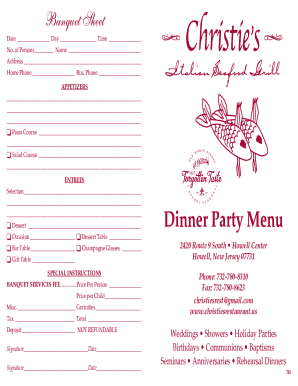 Banquet Sheet
Date Day Time
No. of Persons Name
Address
Home Phone Bus. Phone
APPETIZERS
Pasta Course
Salad Course
ENTREES
Selection
Dessert
Occasion Dessert Table
Bar Table Champagne Glasses
Gift Table
SPECIAL INSTRUCTIONS
BANQUET SERVICES FEE Price Per Person
Price per Child
Misc. Gratuities
Tax Total
Deposit NOT REFUNDABLE
Signature Date
Signature Date
Christie's
Italian Seafood Grill
Forgotten Taste
Dinner Party Menu
2420 Route 9 South • Howell Center
Howell, New Jersey 07731
Phone: 732-780-8310
Fax: 732-780-8623
christiesrest@gmail.com
www.christiesrestaurant.us
Weddings • Showers • Holiday Parties
Birthdays • Communions • Baptisms
Seminars • Anniversaries • Rehearsal Dinners